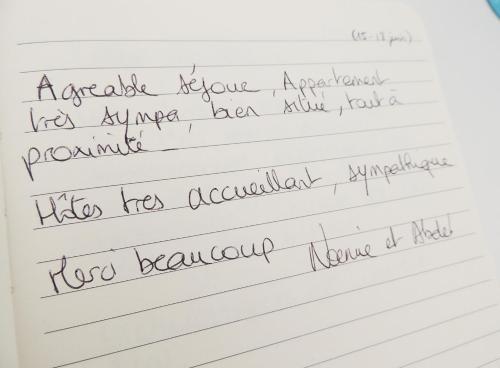 (15-18 juin)
Agreable séjour, Appartement
très sympa, bien situé, tout à
proximité -
Hôtes tres accueillant, sympathique
Merci beaucoup Noemie et Abdel